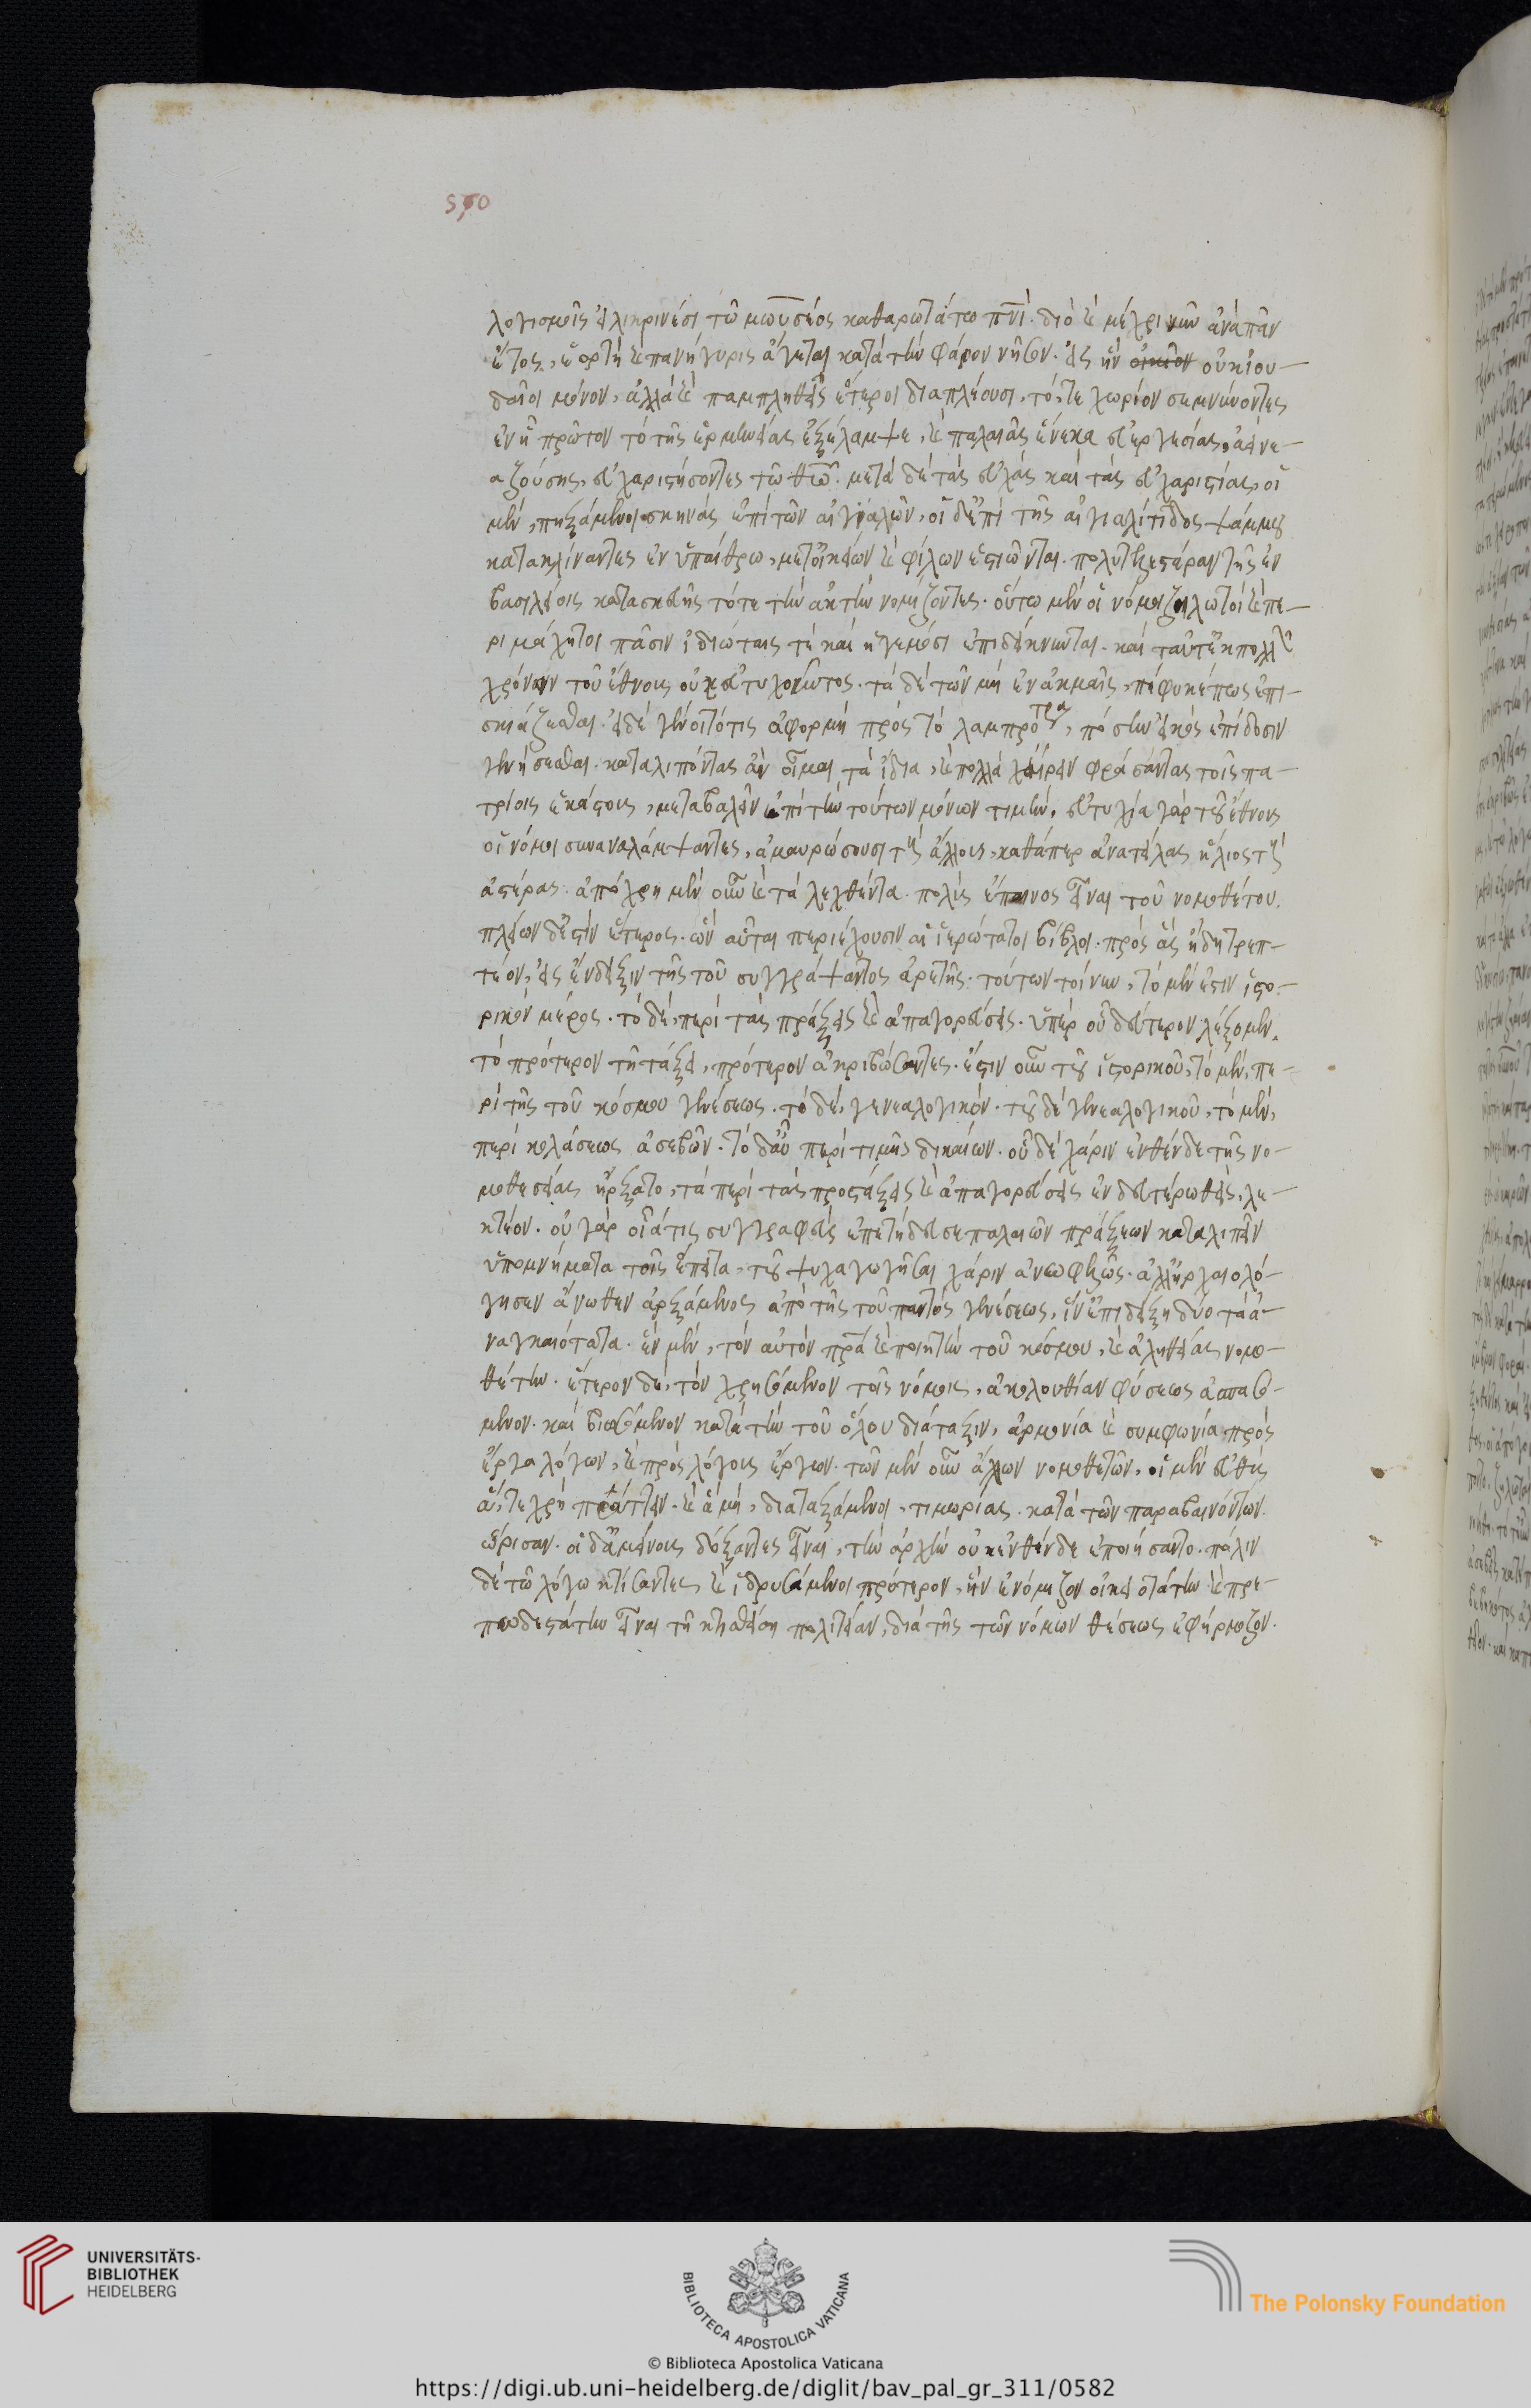 λογισμοῖς εἰλικρινέσι τῶ μωυσέος καθαρωτάτω πνι. διὸ καὶ μέχρι νῦν ἀνὰ πᾶν
ἔτος, ἑορτὴ καὶ πανήγυρις ἄγεται κατὰ τὴν φάρον νῆσον. εἰς ἣν οὐκ ἰου-
δαῖοι μόνον, ἀλλὰ καὶ παμπληθεῖς ἕτεροι διαπλέουσι, τό, τε χωρίον σεμνύνοντες
ἐν ᾧ πρῶτον τὸ τῆς ἑρμηνείας ἐξέλαμψε, καὶ παλαιᾶς ἕνεκα εὐεργεσίας, ἀεὶ νε-
αζούσης, εὐχαριστήσοντες τῶ θεῶ. μετὰ δὲ τὰς εὐχὰς καὶ τὰς εὐχαριστίας, οἱ
μὲν, πηξάμενοι σκηνὰς ἐπὶ τῶν αἰγιαλῶν, οἱ δ' ἐπὶ τῆς αἰγιαλίτιδος ψάμμου
κατακλίναντες ἐν ὑπαίθρω, μετ' οἰκείων καὶ φίλων ἑστιῶνται. πολυτελεστέραν τῆς ἐν
βασιλείοις κατασκευῆς τότε τὴν ἀκτὴν νομίζοντες. οὕτω μὲν οἱ νόμοι ζηλωτοὶ καὶ πε-
ριμάχητοι πᾶσιν ἰδιώταις τὲ καὶ ἡγεμόσι ἐπιδείκνυνται. καὶ ταῦτ' ἐκ πολλοῦ
χρόνων τοῦ ἔθνους οὐκ εὐτυχοῦντος. τὰ δὲ τῶν μὴ ἐν ἀκμαῖς, πέφυκέ πως ἐπι-
σκιάζεσθαι. εἰ δὲ γένοιτό τις ἀφορμὴ πρὸς τὸ λαμπρότερα, πόσην εἰκὸς ἐπίδοσιν
γενήσεσθαι. καταλιπόντας ἂν οἶμαι τὰ ἴδια, καὶ πολλὰ χαίρειν φράσαντας τοῖς πα-
τρίοις ἑκάστοις, μεταβαλεῖν ἐπὶ τὴν τούτων μόνων τιμὴν. εὐτυχία γὰρ τοῦ ἔθνους
οἱ νόμοι συναναλάμψαντες, ἀμαυρώσουσι τοὺς ἄλλους, καθάπερ ἀνατείλας ἥλιος τοὺς
ἀστέρας. ἀπόχρη μὲν οὖν καὶ τὰ λεχθέντα. πολὺς ἔπαινος εἶναι τοῦ νομοθέτου.
πλείων δ' ἐστὶν ἕτερος. ὧν αὗται περιέχουσιν αἱ ἱερώταται βίβλοι. πρὸς ἃς ἤδη τρεπ-
τέον, εἰς ἔνδειξιν τῆς τοῦ συγγράψαντος ἀρετῆς. τούτων τοίνυν, τὸ μέν ἐστιν ἱστο-
ρικὸν μέρος. τὸ δὲ, περὶ τὰς πράξεις καὶ ἀπαγορεύσεις. ὑπὲρ οὗ δεύτερον λέξομεν.
τὸ πρότερον τῇ τάξει, πρότερον ἀκριβώσαντες. ἔστιν οὖν τοῦ ἱστορικοῦ, τὸ μὲν, πε-
ρὶ τῆς τοῦ κόσμου γενέσεως. τὸ δὲ, γενεαλογικόν. τοῦ δὲ γενεαλογικοῦ, τὸ μὲν,
περὶ κολάσεως ἀσεβῶν. τὸ δ' αὖ περὶ τιμῆς δικαίων. οὗ δὲ χάριν ἐνθένδε τῆς νο-
μοθεσίας ἤρξατο, τὰ περὶ τὰς προστάξεις καὶ ἀπαγορεύσεις ἐν δευτέρω θεὶς, λε-
κτέον. οὐ γὰρ οἷά τις συγγραφεὺς ἐπετήδευσε παλαιῶν πράξεων καταλιπεῖν
ὑπομνήματα τοῖς ἔπειτα, τοῦ ψυχαγωγῆσαι χάριν ἀνωφελῶς. ἀλλ' ἠρχαιολό-
γησεν ἄνωθεν ἀρξάμενος ἀπὸ τῆς τοῦ παντὸς γενέσεως, ἵν' ἐπιδείξη δύο τὰ ἀ-
ναγκαιότατα. ἓν μὲν, τὸν αὐτὸν πρα καὶ ποιητὴν τοῦ κόσμου, καὶ ἀληθείας νομο-
θέτην. ἕτερον δὲ, τὸν χρησόμενον τοῖς νόμοις, ἀκολουθίαν φύσεως ἀσπασό-
μενον. καὶ βιωσόμενον κατὰ τὴν τοῦ ὅλου διάταξιν, ἁρμονία καὶ συμφωνία πρὸς
ἔργα λόγων, καὶ πρὸς λόγους ἔργων. τῶν μὲν οὖν ἄλλων νομοθετῶν, οἱ μὲν εὐθὺς
ἅ, τε χρὴ πράττειν. καὶ ἃ μὴ, διαταξάμενοι, τιμωρίας. κατὰ τῶν παραβαινόντων.
ὥρισαν. οἱ δ' ἀμείνους δόξαντες εἶναι, τὴν ἀρχὴν οὐκ ἐνθένδε ἐποιήσαντο. πόλιν
δὲ τῶ λόγω κτίσαντες καὶ ἱδρυσάμενοι πρότερον, ἣν ἐνόμιζον οἰκειοτάτην καὶ πρε-
πωδεστάτην εἶναι τῇ κτισθείση πολιτείαν, διὰ τῆς τῶν νόμων θέσεως ἐφήρμοζον.
UNIVERSITÄTS-
BIBLIOTHEK
HEIDELBERG
BIBLIOTECA APOSTOLICA VATICANA
The Polonsky Foundation
© Biblioteca Apostolica Vaticana
https://digi.ub.uni-heidelberg.de/diglit/bav_pal_gr_311/0582